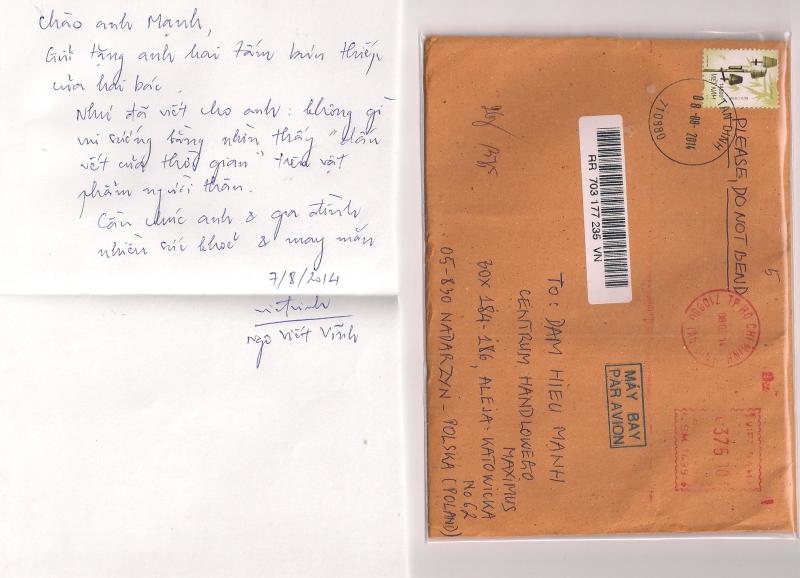 Chào anh Mạnh,
Gửi tặng anh hai tấm bưu thiếp
của hai bác.
Như đã viết cho anh: không gì
vui sướng bằng nhìn thấy "dấu
vết của thời gian" trên vật
phẩm người thân.
Cầu chúc anh & gia đình
nhiều sức khoẻ & may mắn
7/8/2014
Ngô Viết Vĩnh
PLEASE, DO NOT BEND
5
TÂN ĐỊNH
08-08-2014
710980
VIỆT NAM
RR 703 177 235 VN
TP HO CHI MINH
MÁY BAY
PAR AVION
375 10
To: DAM HIEU MANH
CENTRUM HANDLOWEGO
MAXIMUS
BOX 184-186, ALEJA: KATOWICKA
No 62
05-830 NADARZYN - POLSKA (POLAND)